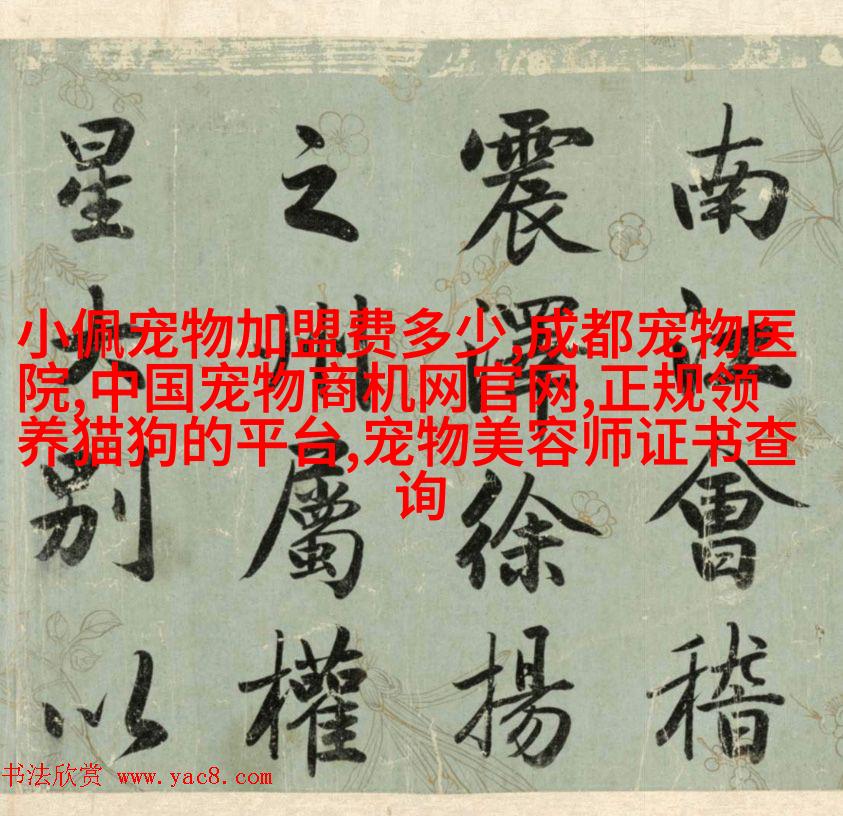 南江會稽
震澤徐揚
之州屬權
星大別以
小佩宠物加盟费多少,成都宠物医
院,中国宠物商机网官网,正规领
养猫狗的平台,宠物美容师证书查
询
书法欣赏 www.yac8.com